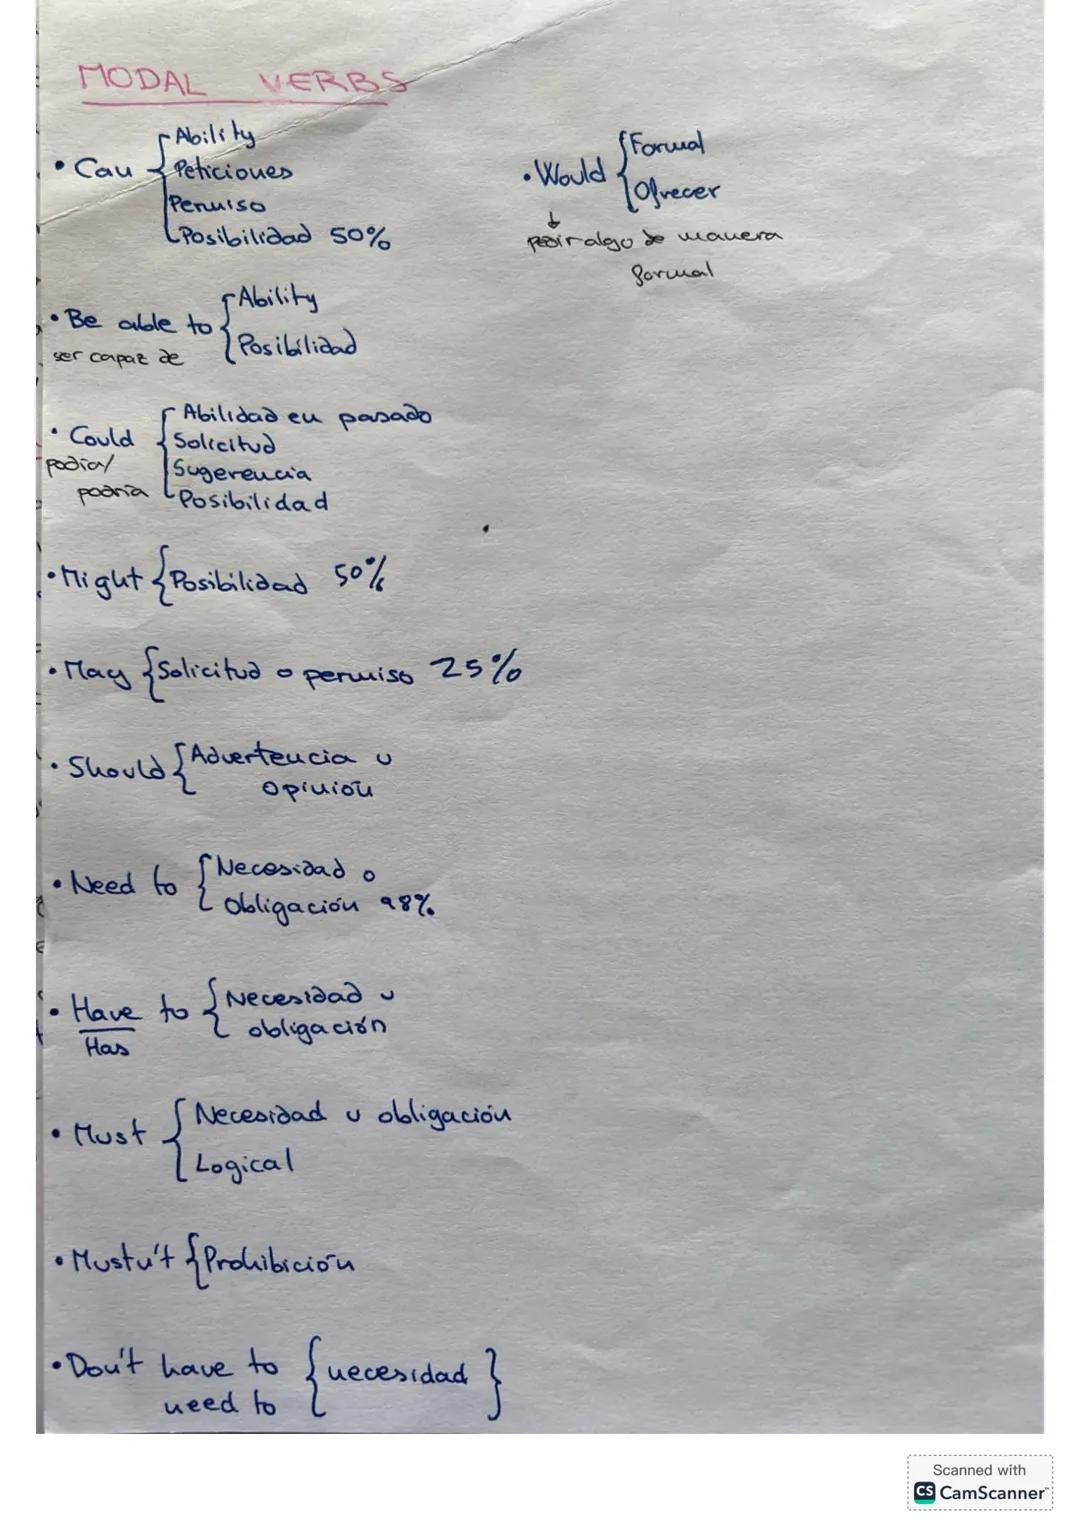 MODAL VERBS
• Can { Ability
Peticiones
Permiso
Posibilidad 50%
• Be able to { Ability
ser capaz de
Posibilidad
• Could { Abilidad en pasado
podía/
podría
Solicitud
Sugerencia
Posibilidad
• Might { Posibilidad 50%
• May { Solicitud o permiso 25%
• Should { Advertencia u
opinión
• Need to { Necesidad o
obligación 98%
• Have to { Necesidad u
Has
obligación
• Must { Necesidad u obligación
Logical
• Mustn't { Prohibición
• Don't have to { necesidad }
need to
• Would { Formal
Ofrecer
↓
pedir algo de manera
formal
Scanned with
CS CamScanner™